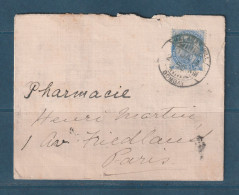 Pharmacie
Henri Martin
1 Av. Friedland
Paris